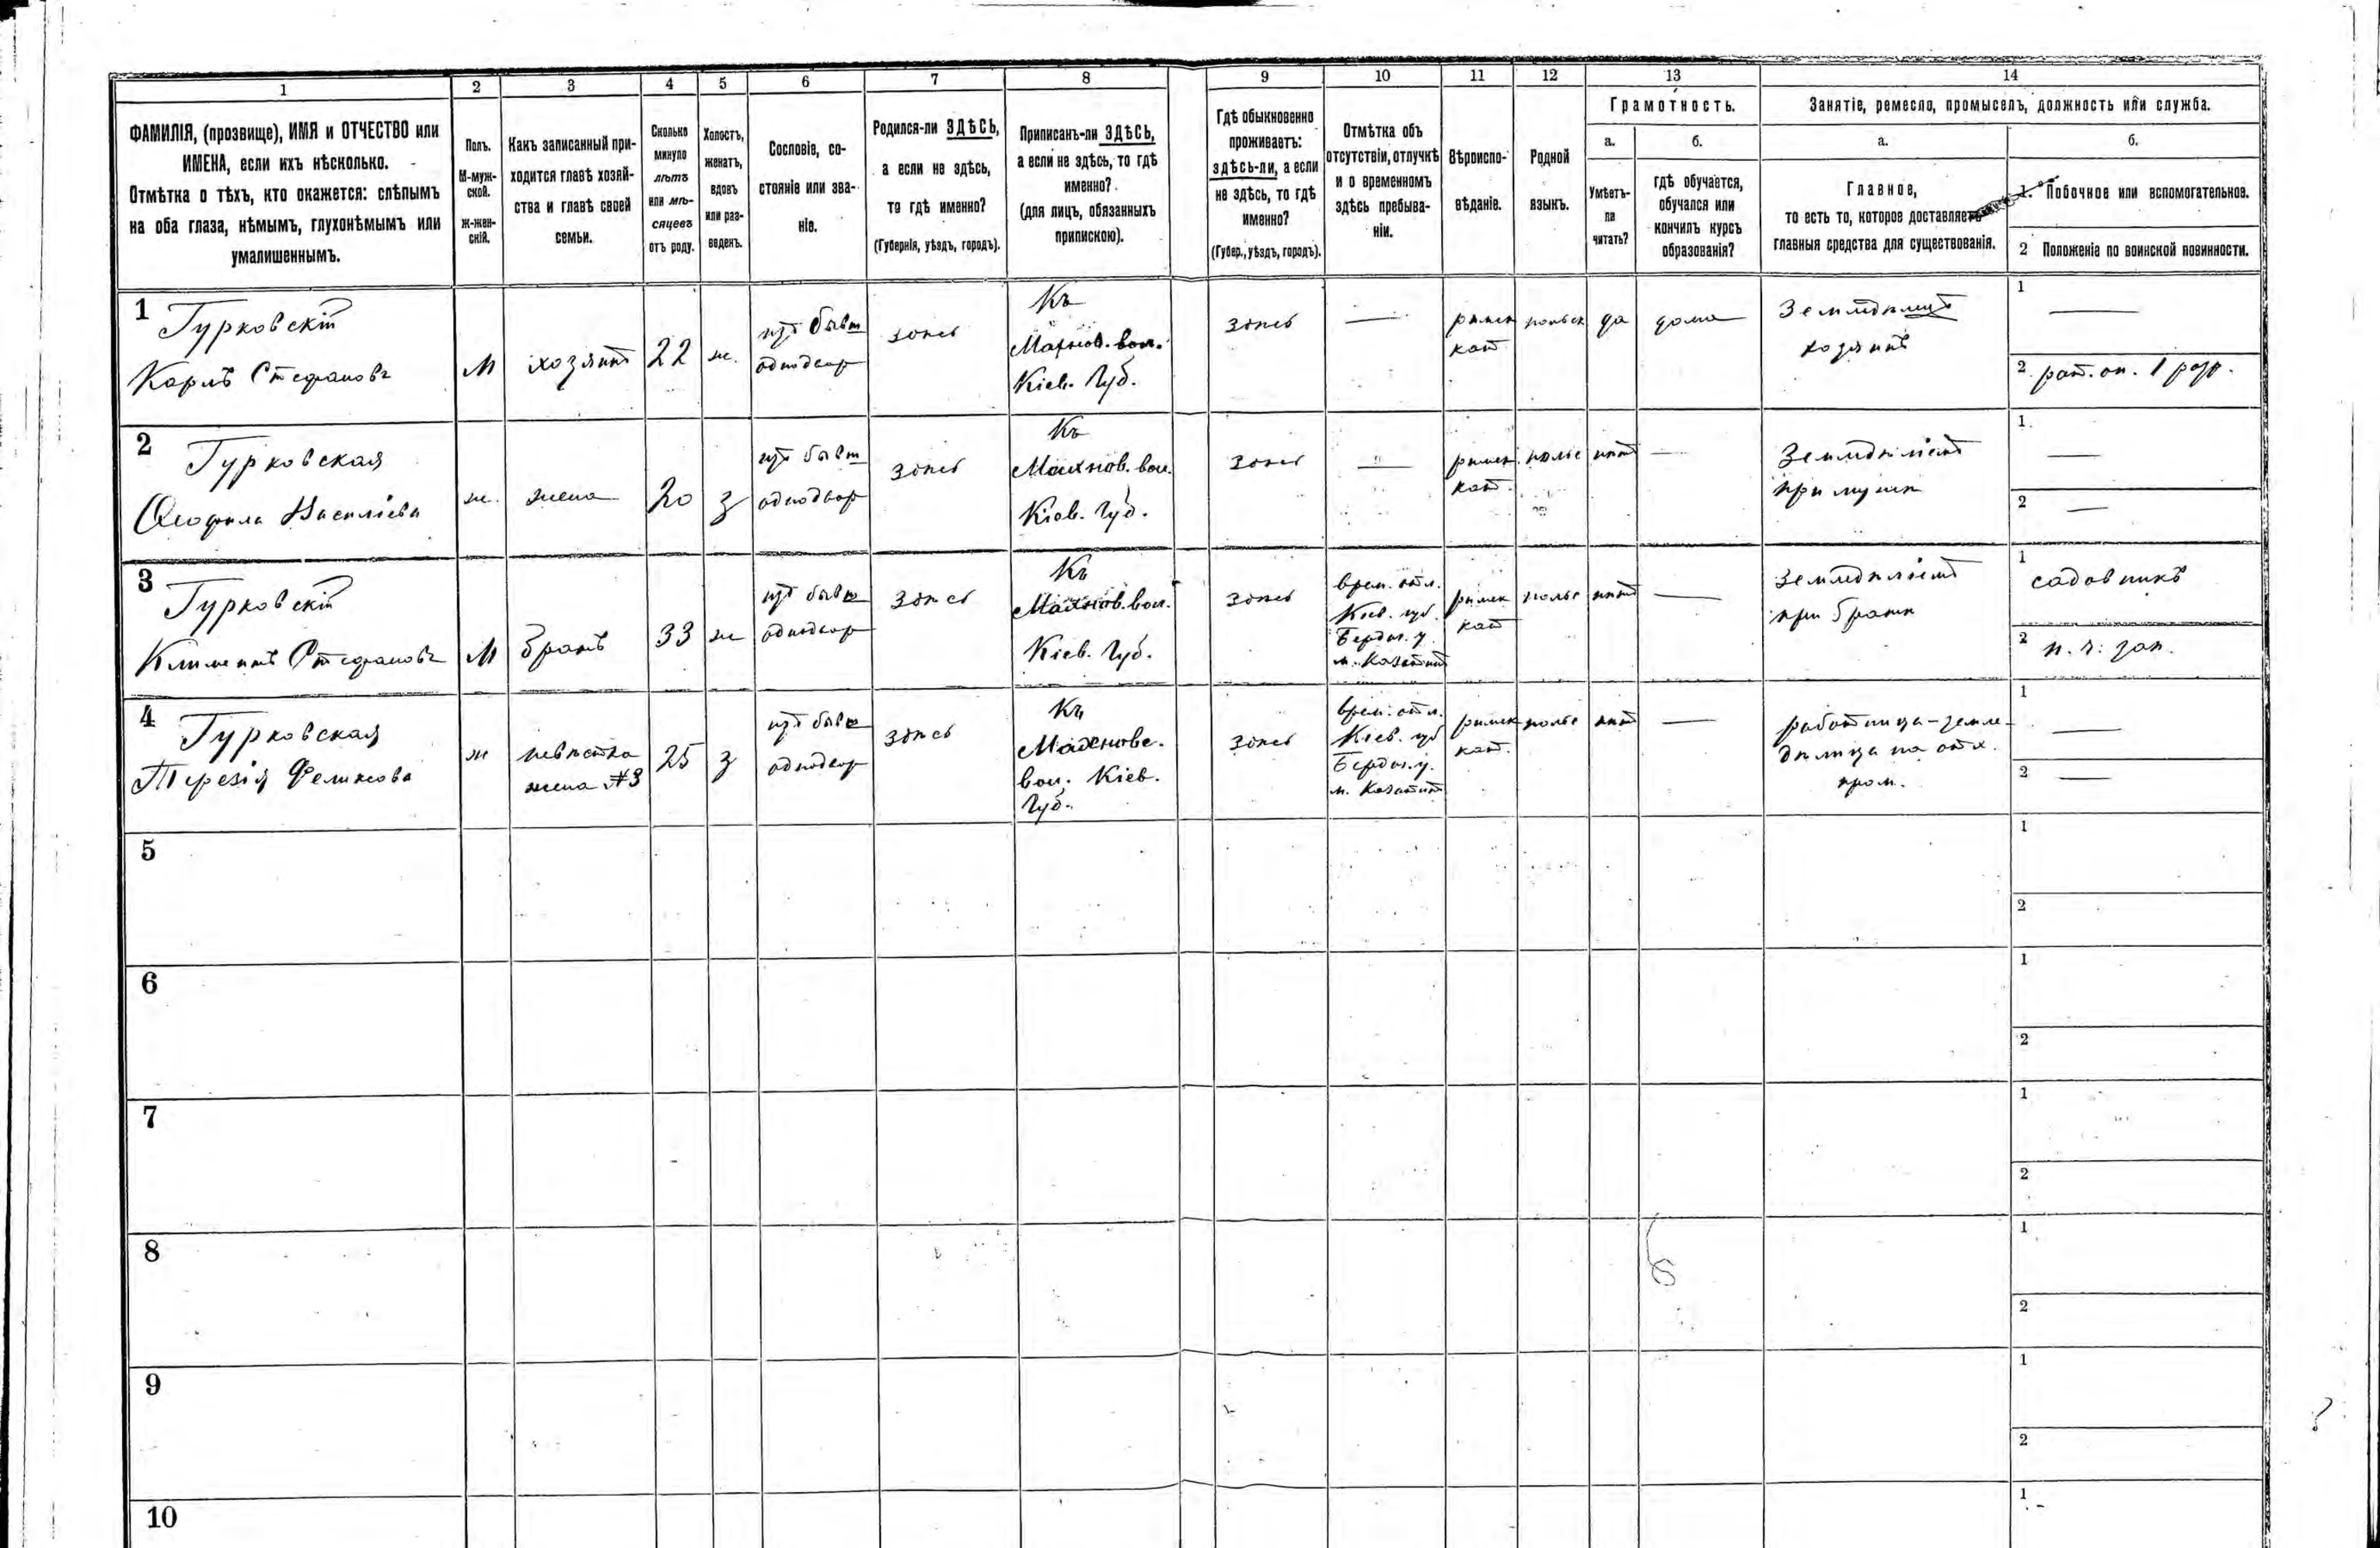 1 2 3 4 5 6 7 8 9 10 11 12 13 14
ФАМИЛІЯ, (прозвище), ИМЯ и ОТЧЕСТВО или
ИМЕНА, если ихъ нѣсколько.
Отмѣтка о тѣхъ, кто окажется: слѣпымъ
на оба глаза, нѣмымъ, глухонѣмымъ или
умалишеннымъ.
Полъ.
М-муж-
ской.
Ж-жен-
скій.
Какъ записанный при-
ходится главѣ хозяй-
ства и главѣ своей
семьи.
Сколько
минуло
лѣтъ
или мѣ-
сяцевъ
отъ роду.
Холостъ,
женатъ,
вдовъ
или раз-
веденъ.
Сословіе, со-
стояніе или зва-
ніе.
Родился-ли ЗДѢСЬ,
а если не здѣсь,
то гдѣ именно?
(Губернія, уѣздъ, городъ).
Приписанъ-ли ЗДѢСЬ,
а если не здѣсь, то гдѣ
именно?
(для лицъ, обязанныхъ
припискою).
Гдѣ обыкновенно
проживаетъ:
здѣсь-ли, а если
не здѣсь, то гдѣ
именно?
(Губер., уѣздъ, городъ).
Отмѣтка объ
отсутствіи, отлучкѣ
и о временномъ
здѣсь пребыва-
ніи.
Вѣроиспо-
вѣданіе.
Родной
языкъ.
Грамотность.
а.
Умѣетъ-
ли
читать?
б.
гдѣ обучается,
обучался или
кончилъ курсъ
образованія?
Занятіе, ремесло, промыселъ, должность или служба.
а.
Главное,
то есть то, которое доставляетъ
главныя средства для существованія.
б.
1. Побочное или вспомогательное.
2 Положеніе по воинской повинности.
1
Гурковскій
Карлъ Стефановъ
М
хозяинъ
22
ж.
изъ бывш
однодвор
здѣсь
Къ
Махнов. вол.
Кіев. Губ.
здѣсь
—
римск
кат
польск
да
дома
Земледѣлецъ
хозяинъ
1
—
2 рат. оп. 1 разр.
2
Гурковская
Ѳеофила Василіева
ж.
жена
20
з
изъ бывш
однодвор
здѣсь
Къ
Махнов. вол.
Кіев. Губ.
здѣсь
—
римск
кат.
польс
нѣтъ
—
Земледѣліемъ
при мужѣ
1.
—
2
—
3
Гурковскій
Климентъ Стефановъ
М
братъ
33
ж
изъ бывш
однодвор
здѣсь
Къ
Махнов. вол.
Кіев. Губ.
здѣсь
врем. отл.
Кіев. губ.
Бердич. у.
м. Казатинъ
римск
кат
польс
нѣтъ
—
земледѣліемъ
при братѣ
1
садовникъ
2
н. ч. зап.
4
Гурковская
Терезія Феликсова
ж
невѣстка
жена №3
25
з
изъ бывш
однодвор
здѣсь
Къ
Махновс.
вол. Кіев.
Губ.
здѣсь
врем. отл.
Кіев. губ
Бердич. у.
м. Казатинъ
римск
кат.
польс
нѣтъ
—
работница-земле-
дѣлица на отх.
пром.
1
—
2
—
5
1
2
6
1
2
7
1
2
8
1
2
9
1
2
10
1